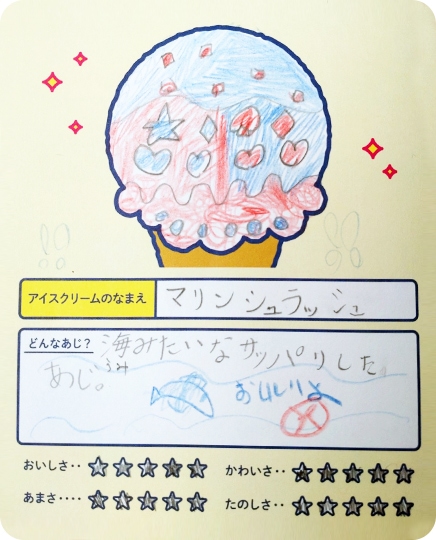 アイスクリームのなまえ マリンシュラッシュ
どんなあじ? 海みたいなサッパリした
うみ
あじ。
おいしいよ
おいしさ‥
かわいさ‥
あまさ‥‥
たのしさ‥